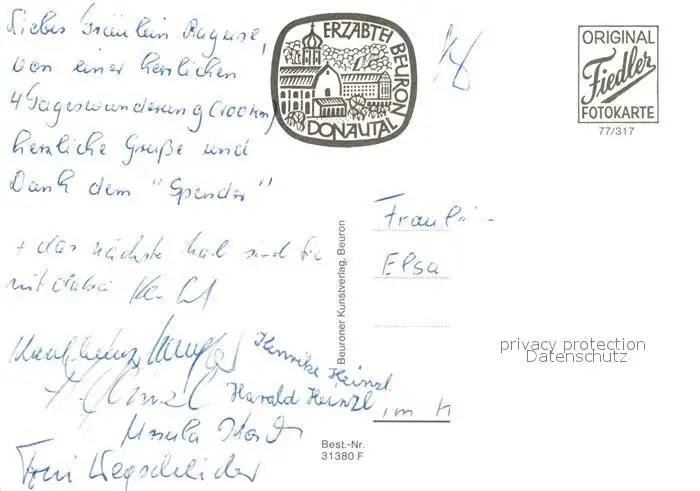 Liebes Fräulein
von einer herrlichen
4 Tageswanderung (100 km)
herzliche Grüße und
Dank dem "Spender"
+ das nächste Mal sind Sie
mit dabei
Karlheinz
Henrike Heinzl
Harald Heinzl
Ursula
ERZABTEI BEURON
DONAUTAL
ORIGINAL
Fiedler
FOTOKARTE
77/317
Beuroner Kunstverlag, Beuron
Fräulein
Elsa
privacy protection
Datenschutz
Best.-Nr.
31380 F